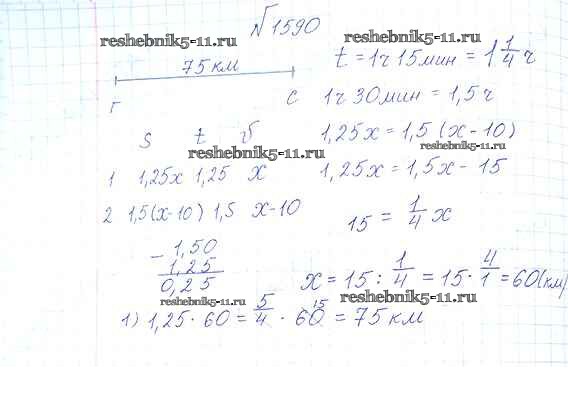 №1590
reshebnik5-11.ru
75 км
Г С
S t v
reshebnik5-11.ru
1 1,25x 1,25 x
2 1,5(x-10) 1,5 x-10
- 1,50
1,25
0,25
reshebnik5-11.ru
1) 1,25 · 60 = 5/4 · 60 15 = 75 км
reshebnik5-11.ru
t = 1ч 15 мин = 1 1/4 ч
1ч 30 мин = 1,5 ч
1,25x = 1,5 (x - 10)
1,25x = 1,5x - 15
15 = 1/4 x
x = 15 : 1/4 = 15 · 4/1 = 60 (км)
reshebnik5-11.ru